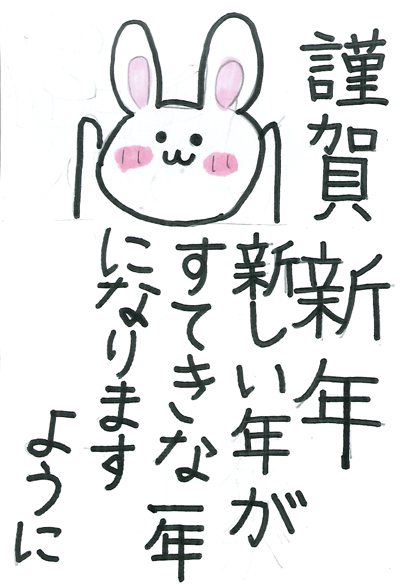 謹賀新年
新しい年が
すてきな一年
になります
ように